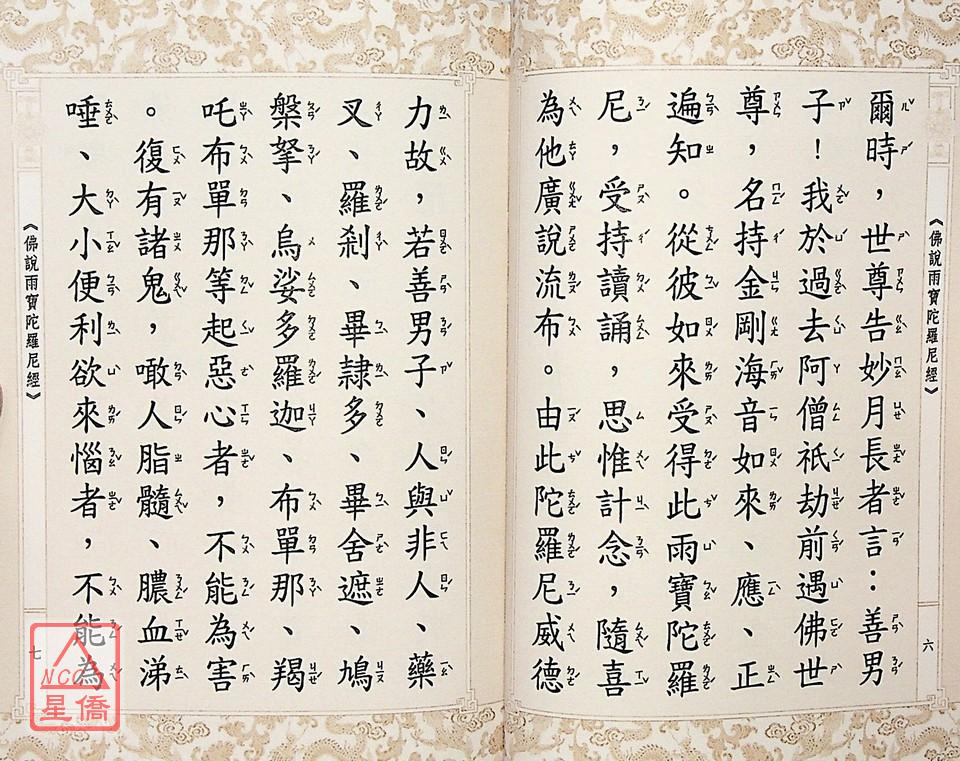 《佛說雨寶陀羅尼經》
爾時，世尊告妙月長者言：善男
子！我於過去阿僧祇劫前遇佛世
尊，名持金剛海音如來、應、正
遍知。從彼如來受得此雨寶陀羅
尼，受持讀誦，思惟計念，隨喜
為他廣說流布。由此陀羅尼威德
六
力故，若善男子、人與非人、藥
叉、羅剎、畢隸多、畢舍遮、鳩
槃拏、烏娑多羅迦、布單那、羯
吒布單那等起惡心者，不能為害
。復有諸鬼，噉人脂髓、膿血涕
唾、大小便利欲來惱者，不能為
《佛說雨寶陀羅尼經》
七
NCC
星僑